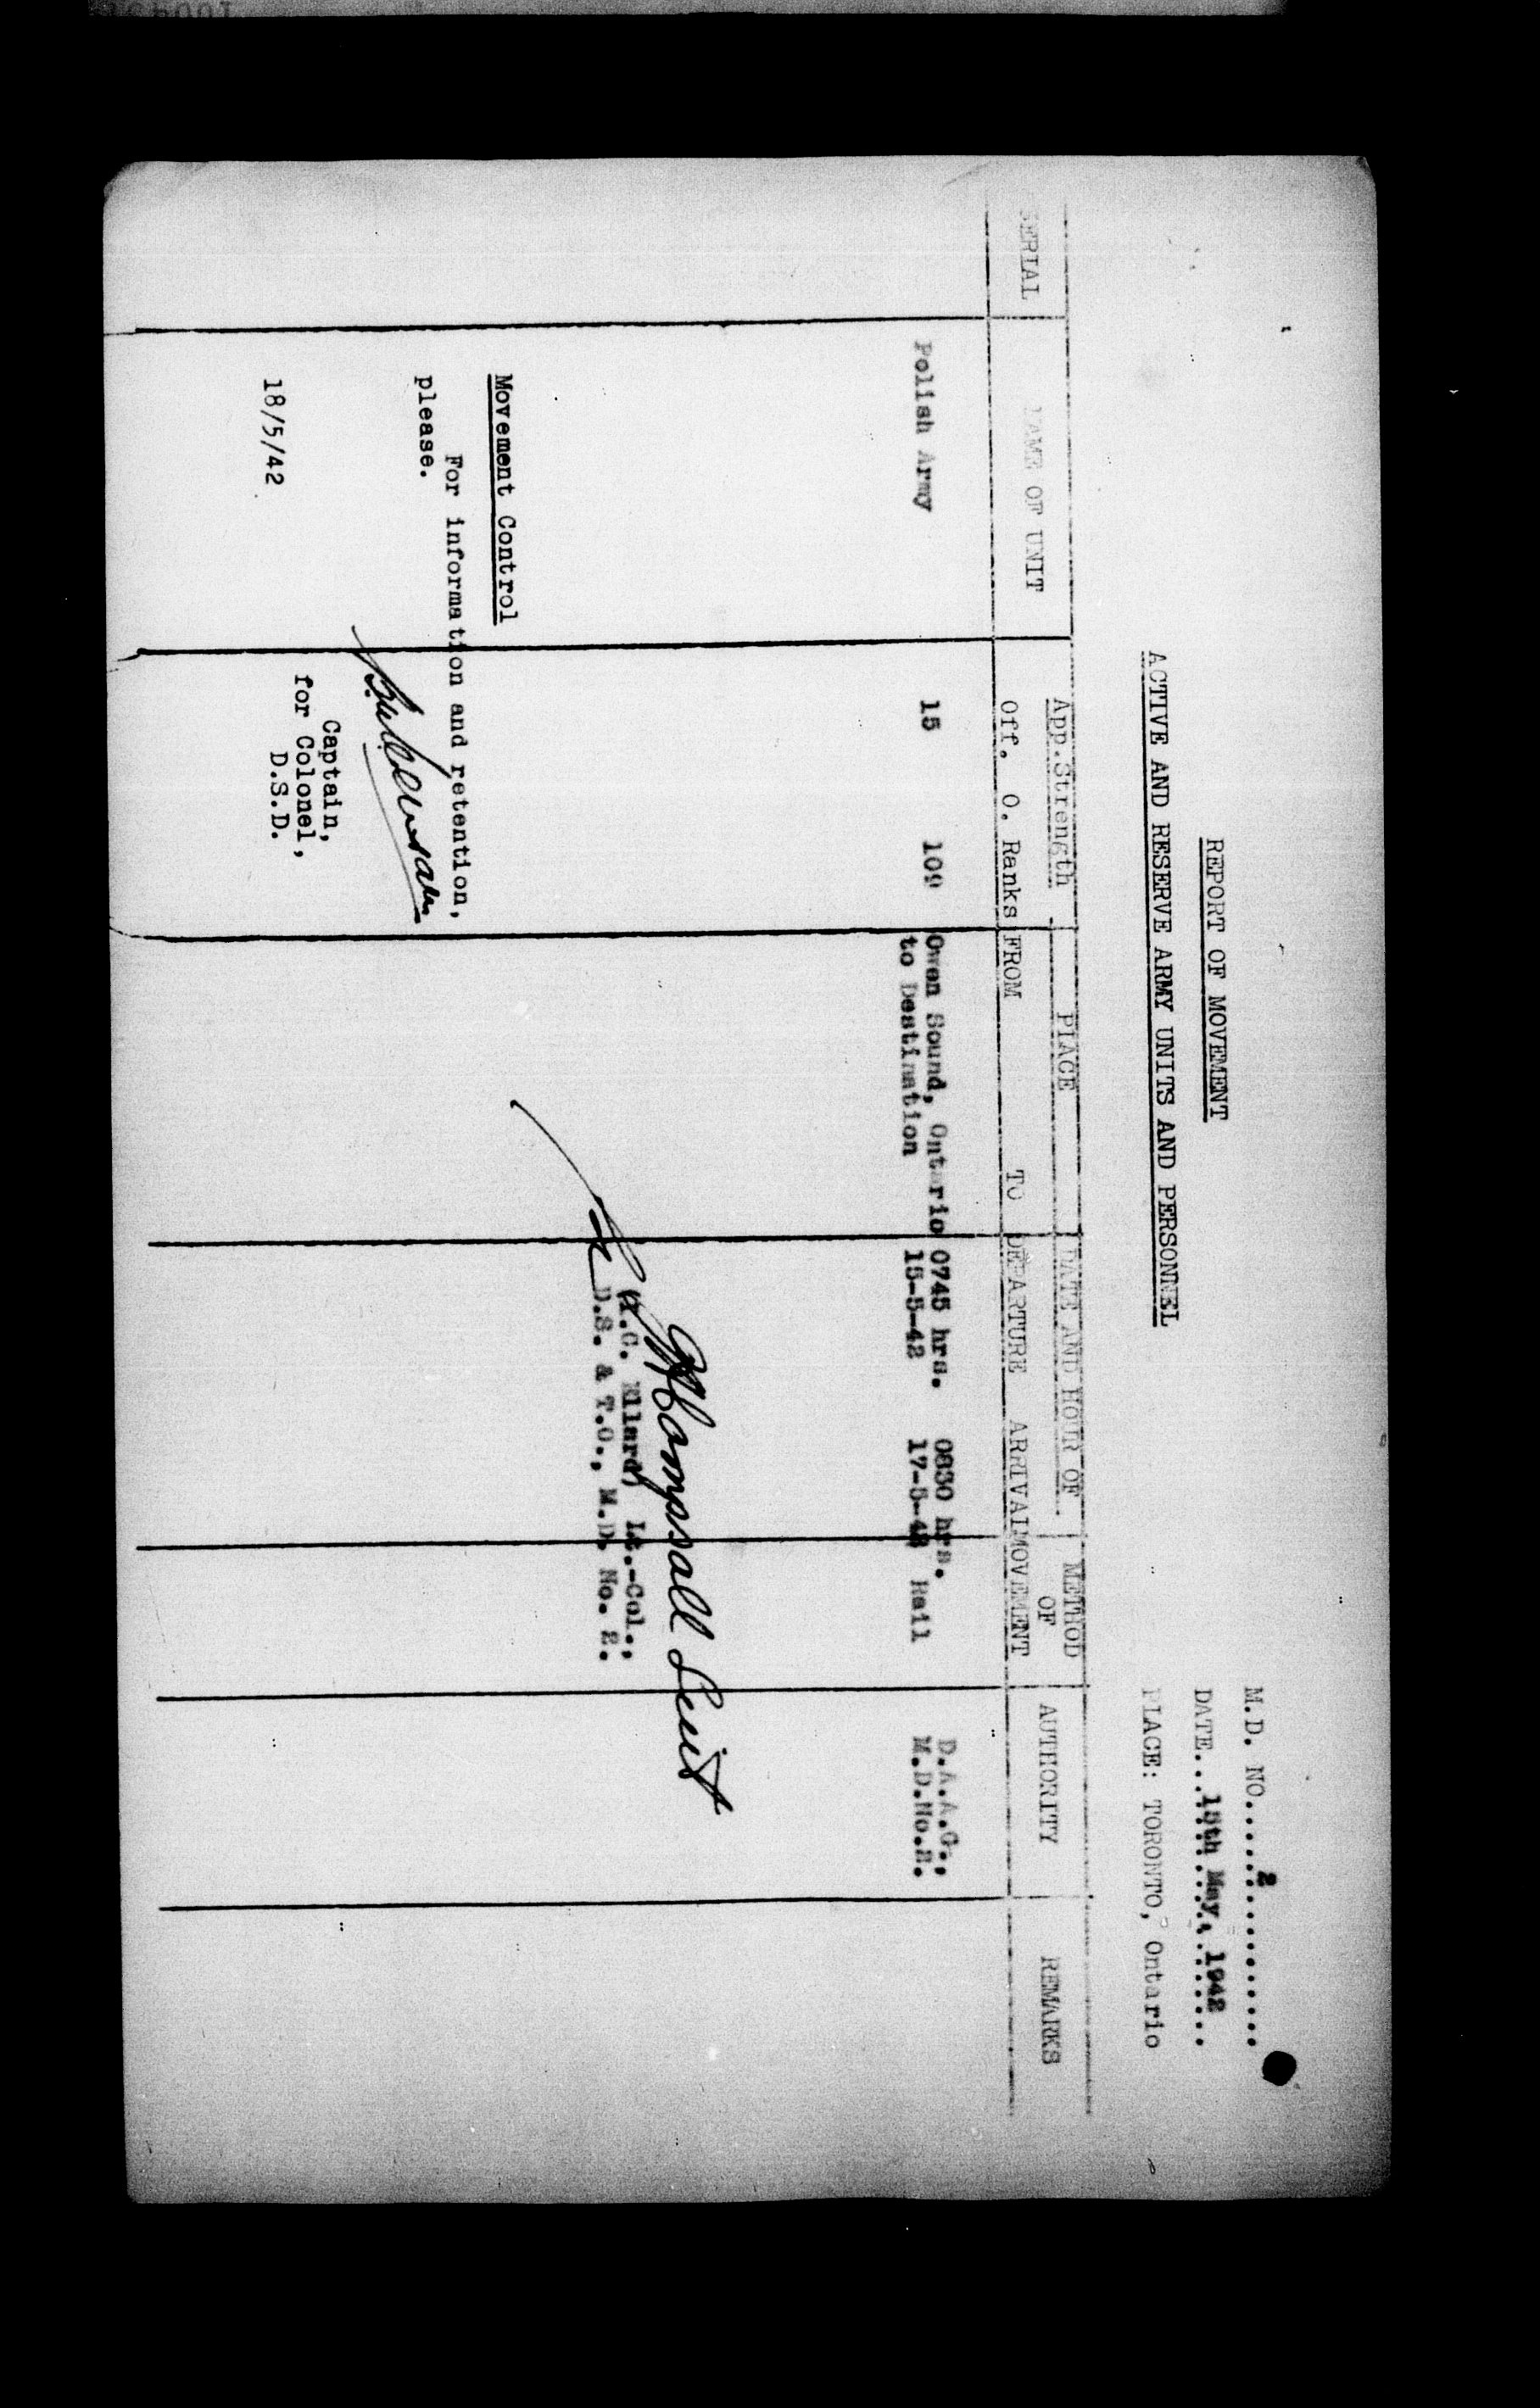 M.D. NO......2..........
DATE...15th May, 1942...
PLACE: TORONTO, Ontario
REPORT OF MOVEMENT
ACTIVE AND RESERVE ARMY UNITS AND PERSONNEL
SERIAL NAME OF UNIT App.Strength PLACE DATE AND HOUR OF METHOD OF AUTHORITY REMARKS
Off. O. Ranks FROM TO DEPARTURE ARRIVAL MOVEMENT
Polish Army 15 109 Owen Sound, Ontario 0745 hrs. 0830 hrs. Rail D.A.A.G.,
to Destination 15-5-42 17-5-42 M.D.No.2.
Thompsall Lieut
Ellard) Lt.-Col.,
D.S. & T.O., M.D. No. 2.
Movement Control
For information and retention,
please.
Captain,
for Colonel,
D.S.D.
18/5/42